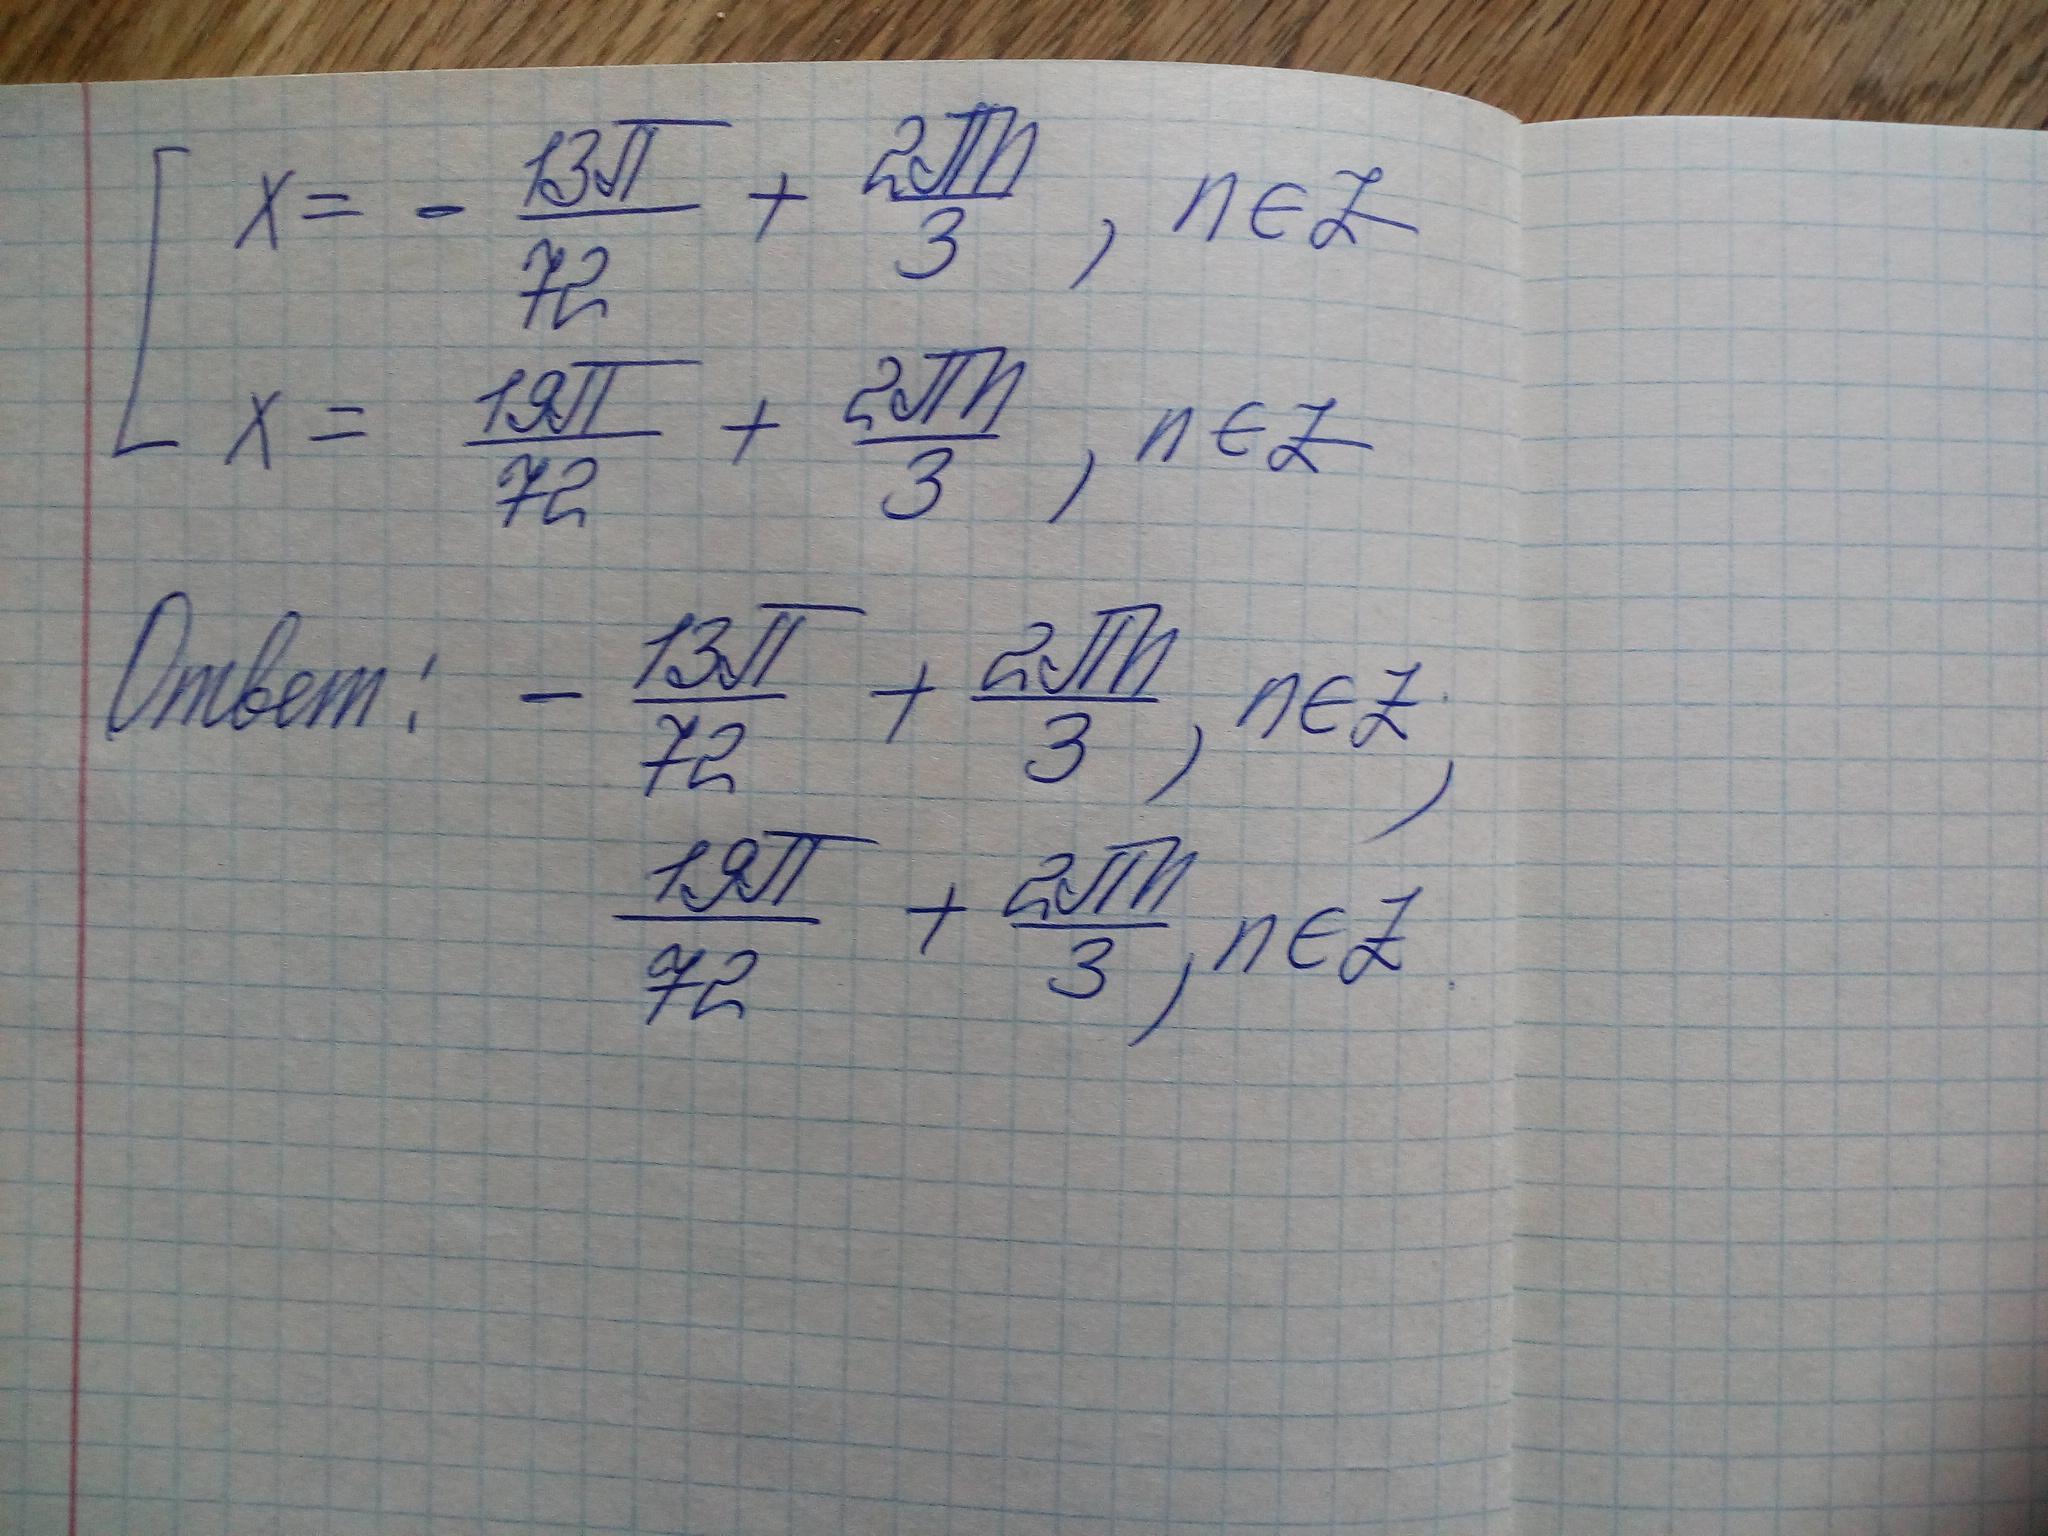 [ x = - 13π/72 + 2πn/3 , n ∈ Z
x = 19π/72 + 2πn/3 , n ∈ Z
Ответ: - 13π/72 + 2πn/3 , n ∈ Z ;
19π/72 + 2πn/3 , n ∈ Z .